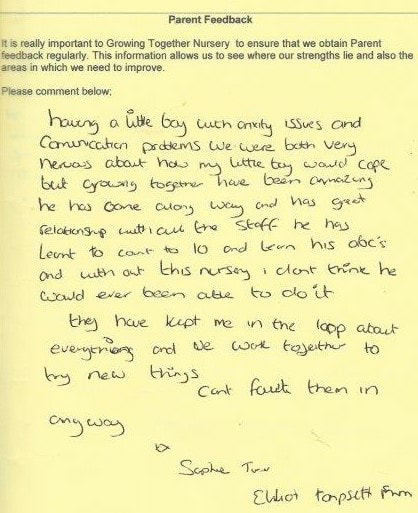 Parent Feedback
It is really important to Growing Together Nursery to ensure that we obtain Parent
feedback regularly. This information allows us to see where our strengths lie and also the
areas in which we need to improve.
Please comment below;
having a little boy with anxity issues and
Comunication problems we were both very
nervous about how my little boy would cope
but growing together have been ammazing
he has come along way and has great
relationship with all the staff he has
learnt to count to 10 and learn his abc's
and with out this nursery i dont think he
would ever been able to do it
they have kept me in the loop about
everything and we work together to
try new things
Cant fault them in
any way
Sophie
Elliot